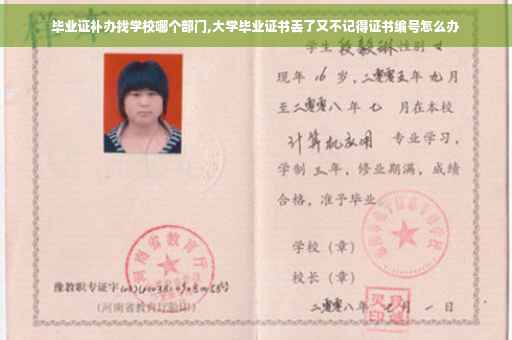 毕业证补办找学校哪个部门,大学毕业证书丢了又不记得证书编号怎么办
学生 段毅琳 性别 女
现年 16 岁,二零零五年 九月
至二零零八年 七 月在本校
计算机应用 专业学习,
学制 三年,修业期满,成绩
合格,准予毕业
学校(章)
校长(章)
二零零八年 月 一 日
河南省教育厅
豫教职专证字
(河南省教育厅验印)